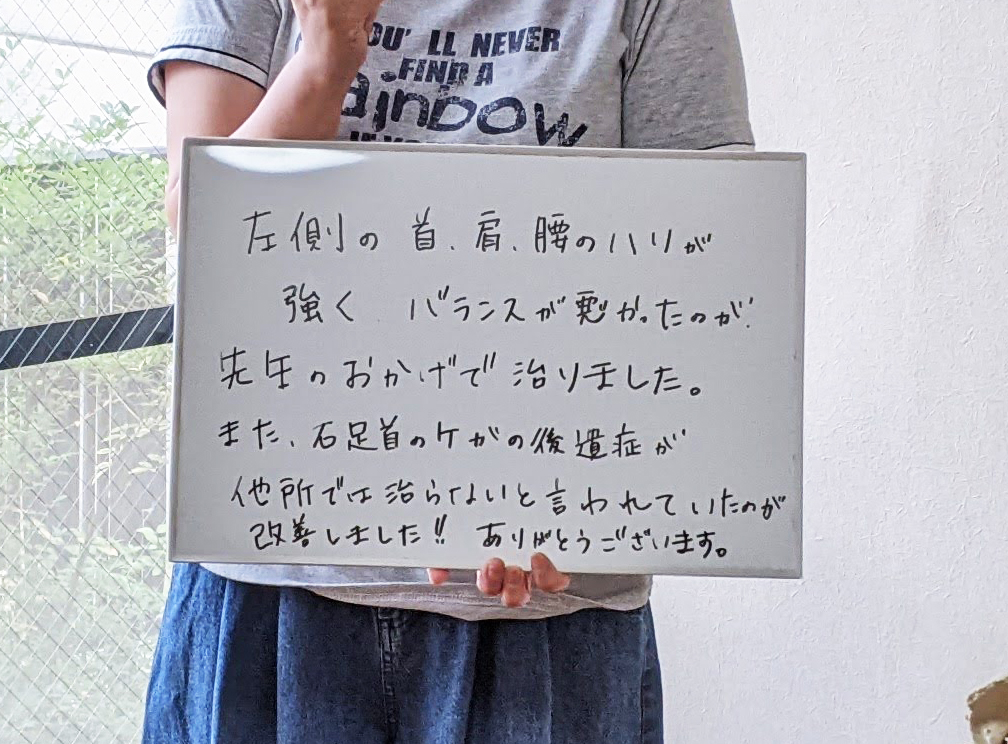 OU'LL NEVER
FIND A
ainbow
左側の首、肩、腰のハリが
強く バランスが悪かったのが、
先生のおかげで治りました。
また、右足首のケガの後遺症が
他所では治らないと言われていたのが
改善しました!! ありがとうございます。